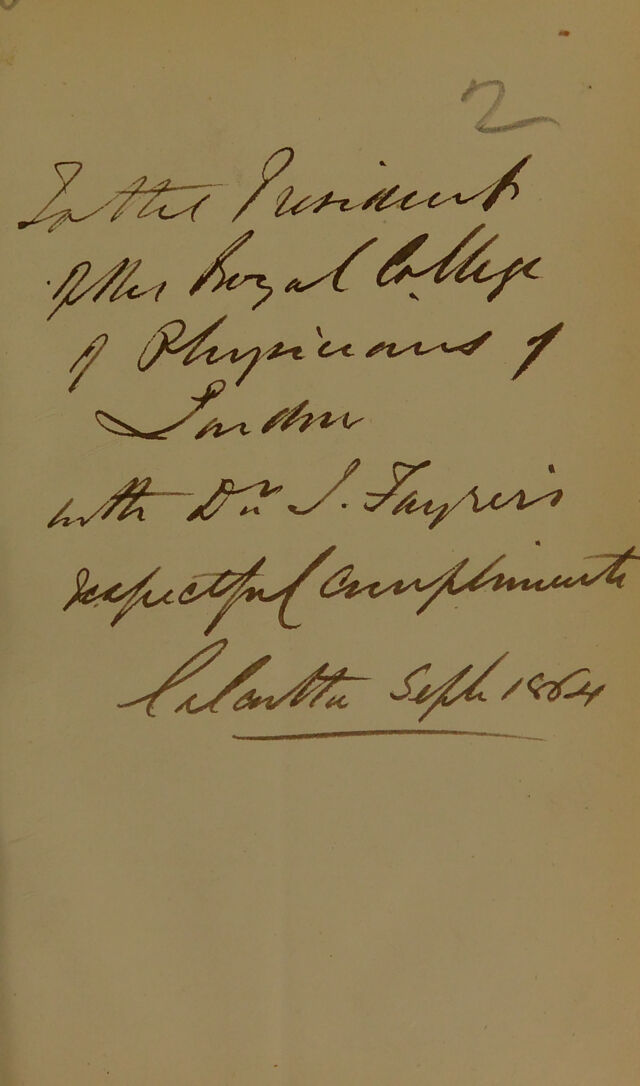 2
To the President
of the Royal College
of Physicians of
London
with Dr. J. Fayrer's
respectful compliments
Calcutta Sept 1864